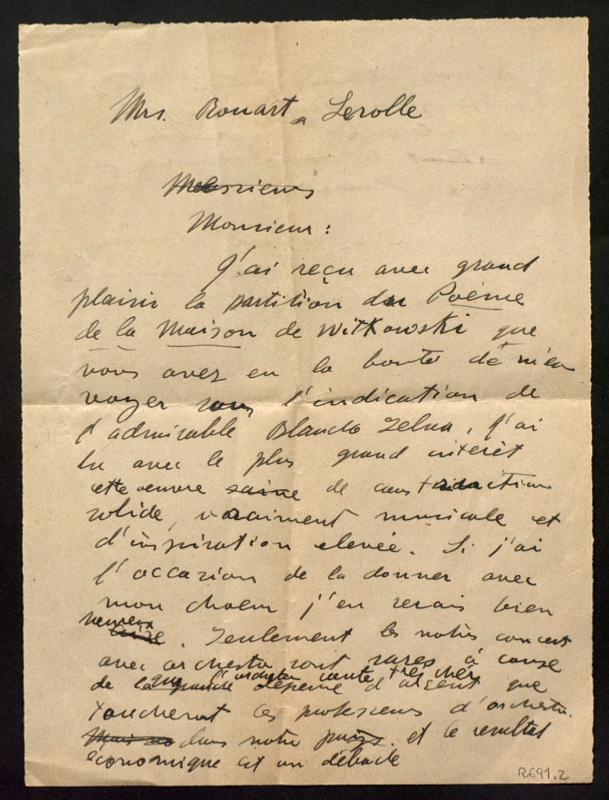 Mrs. Rouart Lerolle
Messieurs
Monsieur:
J'ai reçu avec grand
plaisir la partition du Poème
de la Maison de Witkowski que
vous avez eu la bonté de m'en
voyer sous l'indication de
l'admirable Blanche Selva, j'ai
lu avec le plus grand intérêt
cette oeuvre saine de construction
solide, vraiment musicale et
d'inspiration elevée. Si j'ai
l'occazion de la donner avec
mon choeur j'en serais bien
heureux. Seulement les notres concert
avec orchestre sont rares à cause
que l'orchestre coute tres cher
de la grande depense d'argent que
toucheront les professeurs d'orchestre
Mais dans notre pays. et le resultat
economique est un débacle
R.691.2